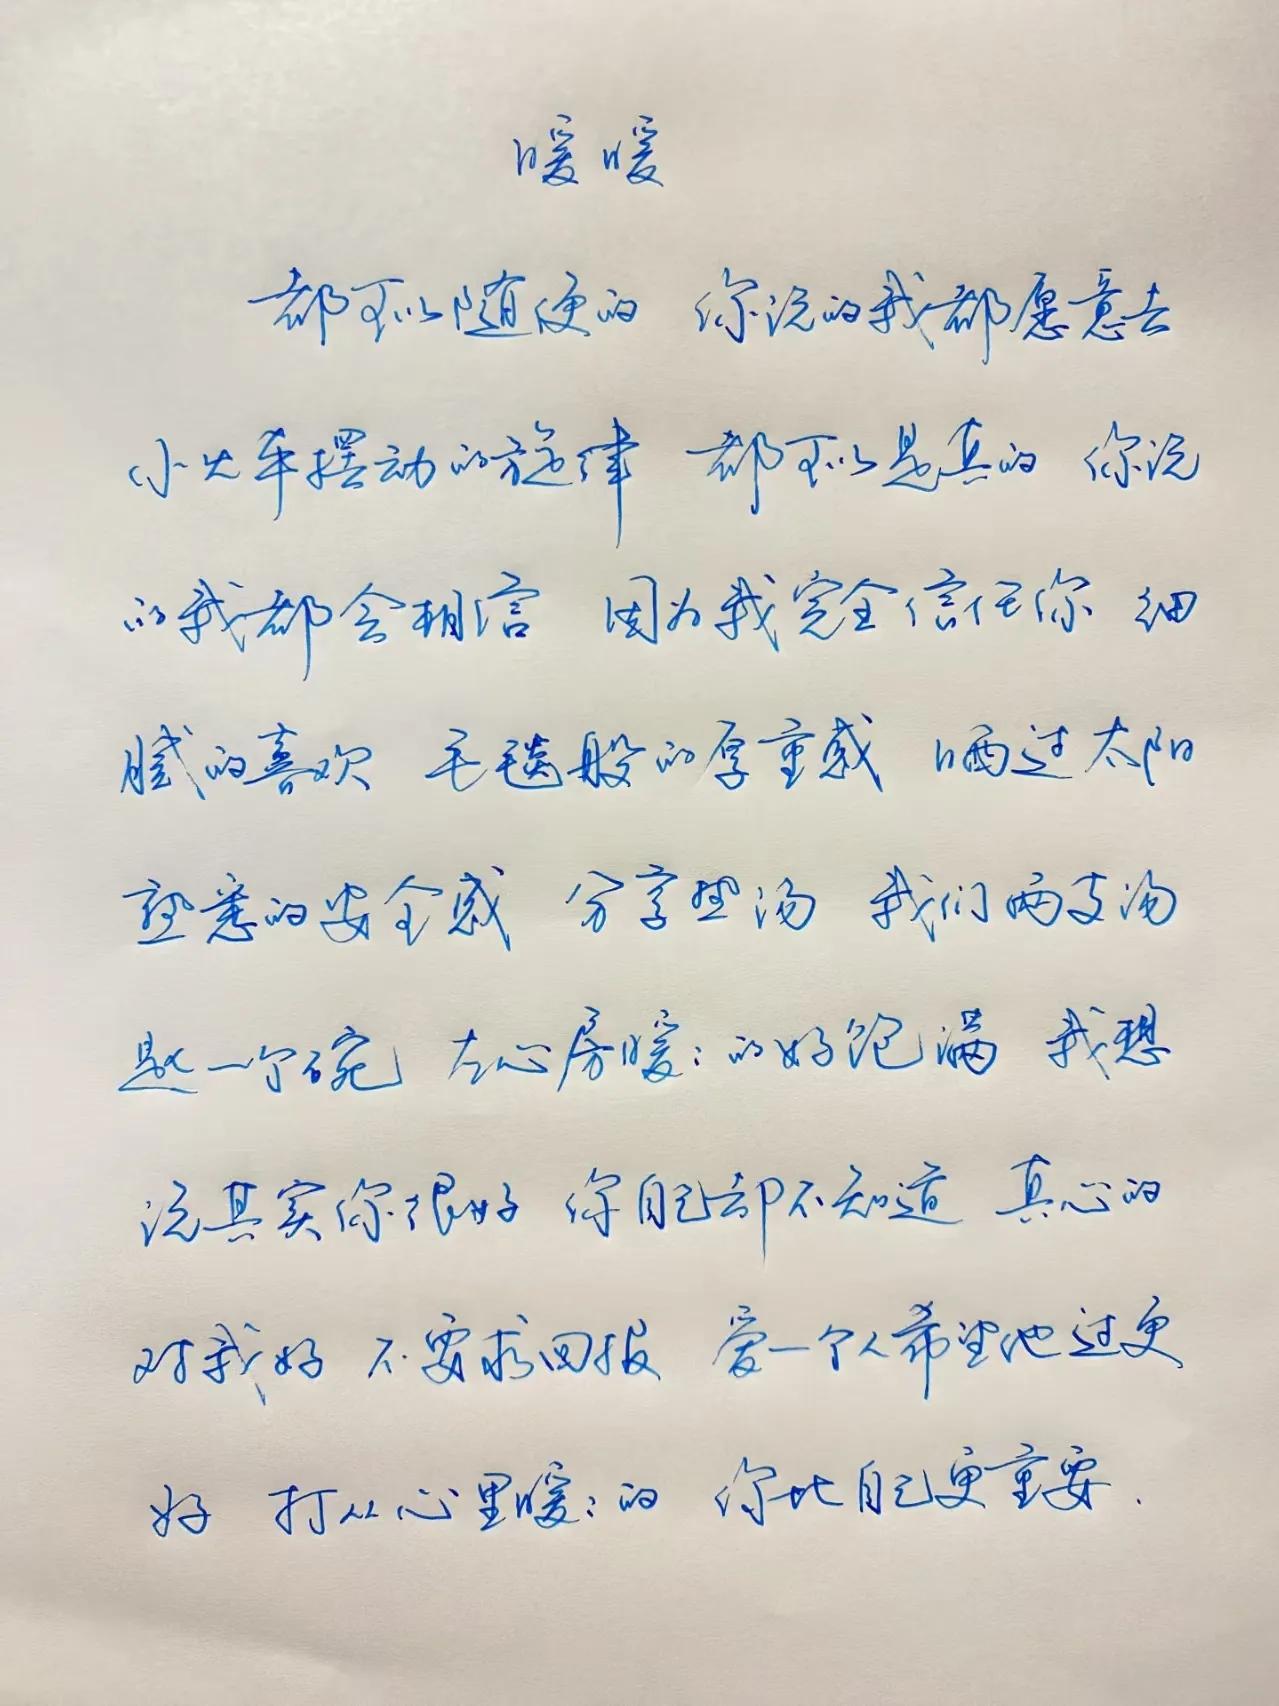 暖暖
都可以随便的 你说的我都愿意去
小火车摆动的旋律 都可以是真的 你说
的我都会相信 因为我完全信任你 细
腻的喜欢 毛毯般的厚重感 晒过太阳
熟悉的安全感 分享热汤 我们两支汤
匙一个碗 左心房暖:的好饱满 我想
说其实你很好 你自己却不知道 真心的
对我好 不要求回报 爱一个人希望他过更
好 打从心里暖:的 你比自己更重要.